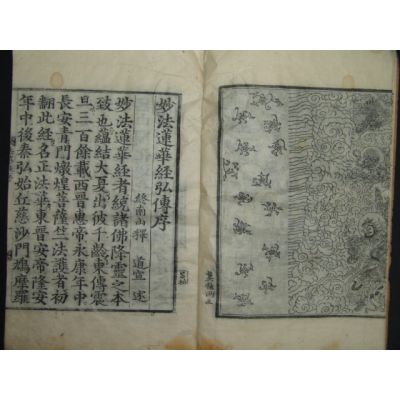 妙法蓮華經弘傳序
終南山釋 道宣 述
妙法蓮華經者統諸佛降靈之本
致也蘊結大夏出彼千齡東傳震
旦三百餘載西晉惠帝永康年中
長安青門燉煌菩薩竺法護者初
翻此經名正法華東晉安帝隆安
年中後秦弘始龜茲沙門鳩摩羅